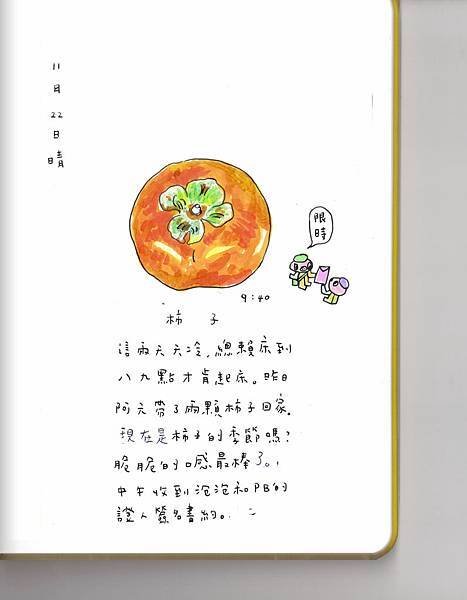 11月22日晴
限時
9:40
柿子
這兩天天冷,總賴床到
八九點才肯起床。昨日
阿元帶了兩顆柿子回家.
現在是柿子的季節嗎?
脆脆的口感最棒了。
中午收到泡泡和PB的
證人簽名書約。